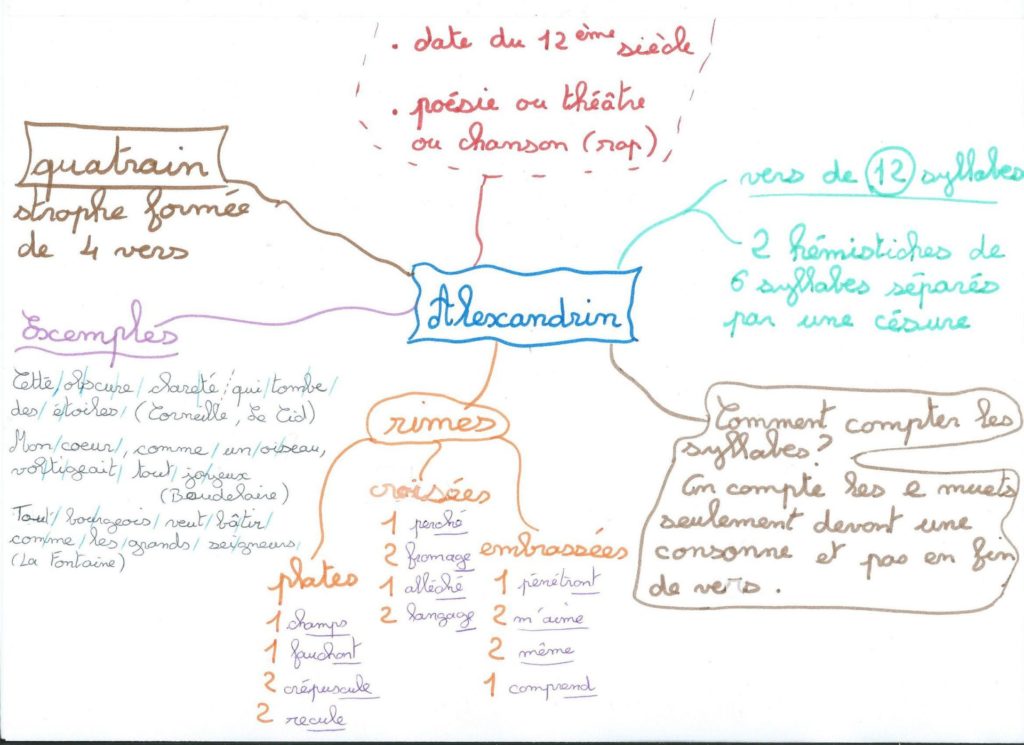 • date du 12ème siècle
• poésie ou théâtre
ou chanson (rap)
quatrain
strophe formée
de 4 vers
vers de 12 syllabes
2 hémistiches de
6 syllabes séparés
par une césure
Alexandrin
Exemples
Cette/obs/cure/clareté/qui/tombe/
des/étoiles/(Corneille, Le Cid)
Mon/coeur/, comme/un/oiseau,
voltigeait/tout/joyeux
(Baudelaire)
Tout/bourgeois/veut/bâtir/
comme/les/grands/seigneurs/
(La Fontaine)
rimes
plates
1 champs
1 fauchant
2 crépuscule
2 recule
croisées
1 perché
2 fromage
1 alléché
2 langage
embrassées
1 pénétrant
2 m'aime
2 même
1 comprend
Comment compter les
syllabes?
On compte les e muets
seulement devant une
consonne et pas en fin
de vers.